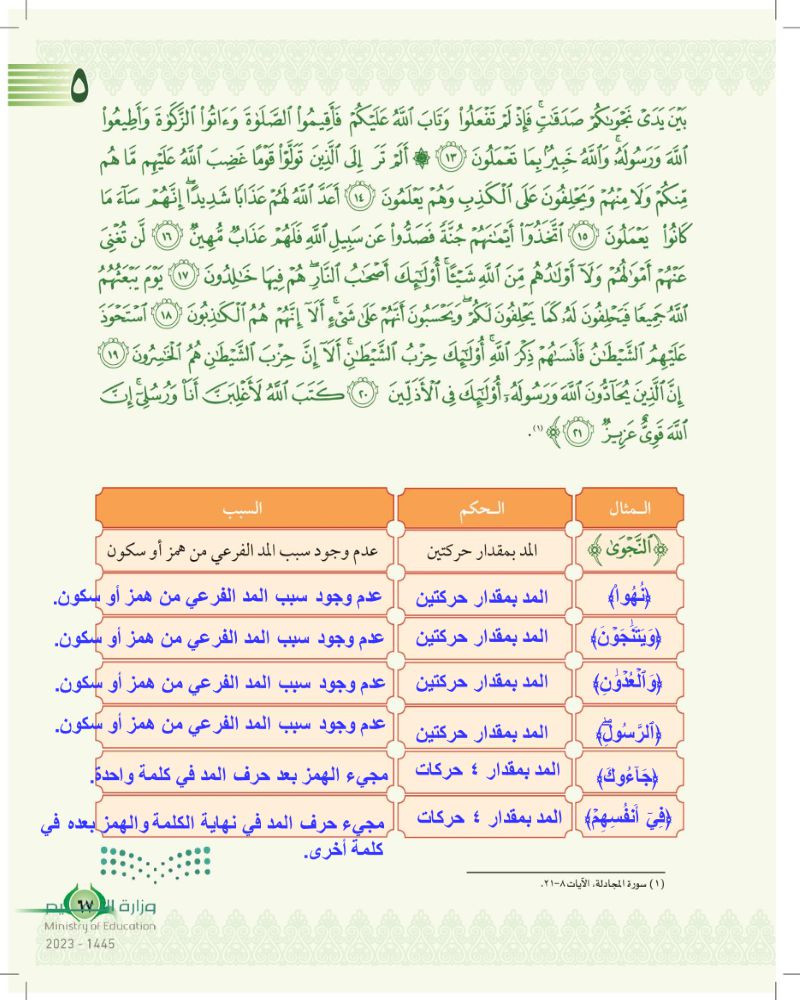 ٥
بَيْنَ يَدَىْ نَجْوَىٰكُمْ صَدَقَٰتٍۢ ۚ فَإِذْ لَمْ تَفْعَلُوا۟ وَتَابَ ٱللَّهُ عَلَيْكُمْ فَأَقِيمُوا۟ ٱلصَّلَوٰةَ وَءَاتُوا۟ ٱلزَّكَوٰةَ وَأَطِيعُوا۟
ٱللَّهَ وَرَسُولَهُۥ ۚ وَٱللَّهُ خَبِيرٌۢ بِمَا تَعْمَلُونَ ١٣ ۞ أَلَمْ تَرَ إِلَى ٱلَّذِينَ تَوَلَّوْا۟ قَوْمًا غَضِبَ ٱللَّهُ عَلَيْهِم مَّا هُم
مِّنكُمْ وَلَا مِنْهُمْ وَيَحْلِفُونَ عَلَى ٱلْكَذِبِ وَهُمْ يَعْلَمُونَ ١٤ أَعَدَّ ٱللَّهُ لَهُمْ عَذَابًا شَدِيدًا ۖ إِنَّهُمْ سَآءَ مَا
كَانُوا۟ يَعْمَلُونَ ١٥ ٱتَّخَذُوٓا۟ أَيْمَٰنَهُمْ جُنَّةً فَصَدُّوا۟ عَن سَبِيلِ ٱللَّهِ فَلَهُمْ عَذَابٌ مُّهِينٌ ١٦ لَّن تُغْنِىَ
عَنْهُمْ أَمْوَٰلُهُمْ وَلَآ أَوْلَٰدُهُم مِّنَ ٱللَّهِ شَيْـًٔا ۚ أُو۟لَٰٓئِكَ أَصْحَٰبُ ٱلنَّارِ ۖ هُمْ فِيهَا خَٰلِدُونَ ١٧ يَوْمَ يَبْعَثُهُمُ
ٱللَّهُ جَمِيعًا فَيَحْلِفُونَ لَهُۥ كَمَا يَحْلِفُونَ لَكُمْ ۖ وَيَحْسَبُونَ أَنَّهُمْ عَلَىٰ شَىْءٍ ۚ أَلَآ إِنَّهُمْ هُمُ ٱلْكَٰذِبُونَ ١٨ ٱسْتَحْوَذَ
عَلَيْهِمُ ٱلشَّيْطَٰنُ فَأَنسَىٰهُمْ ذِكْرَ ٱللَّهِ ۚ أُو۟لَٰٓئِكَ حِزْبُ ٱلشَّيْطَٰنِ ۚ أَلَآ إِنَّ حِزْبَ ٱلشَّيْطَٰنِ هُمُ ٱلْخَٰسِرُونَ ١٩
إِنَّ ٱلَّذِينَ يُحَآدُّونَ ٱللَّهَ وَرَسُولَهُۥٓ أُو۟لَٰٓئِكَ فِى ٱلْأَذَلِّينَ ٢٠ كَتَبَ ٱللَّهُ لَأَغْلِبَنَّ أَنَا۠ وَرُسُلِىٓ ۚ إِنَّ
ٱللَّهَ قَوِىٌّ عَزِيزٌ ٢١ ﴾ (١).
المثال الحكم السبب
﴿ٱلنَّجْوَىٰ﴾ المد بمقدار حركتين عدم وجود سبب المد الفرعي من همز أو سكون
﴿نُهُوا۟﴾ المد بمقدار حركتين عدم وجود سبب المد الفرعي من همز أو سكون.
﴿وَيَتَنَٰجَوْنَ﴾ المد بمقدار حركتين عدم وجود سبب المد الفرعي من همز أو سكون.
﴿وَٱلْعُدْوَٰنِ﴾ المد بمقدار حركتين عدم وجود سبب المد الفرعي من همز أو سكون.
﴿ٱلرَّسُولِۖ﴾ المد بمقدار حركتين عدم وجود سبب المد الفرعي من همز أو سكون.
﴿جَآءُوكَ﴾ المد بمقدار ٤ حركات مجيء الهمز بعد حرف المد في كلمة واحدة.
﴿فِىٓ أَنفُسِهِمْ﴾ المد بمقدار ٤ حركات مجيء حرف المد في نهاية الكلمة والهمز بعده في
كلمة أخرى.
(١) سورة المجادلة، الآيات ٨-٢١.
وزارة التعليم
٦٧
Ministry of Education
2023 - 1445